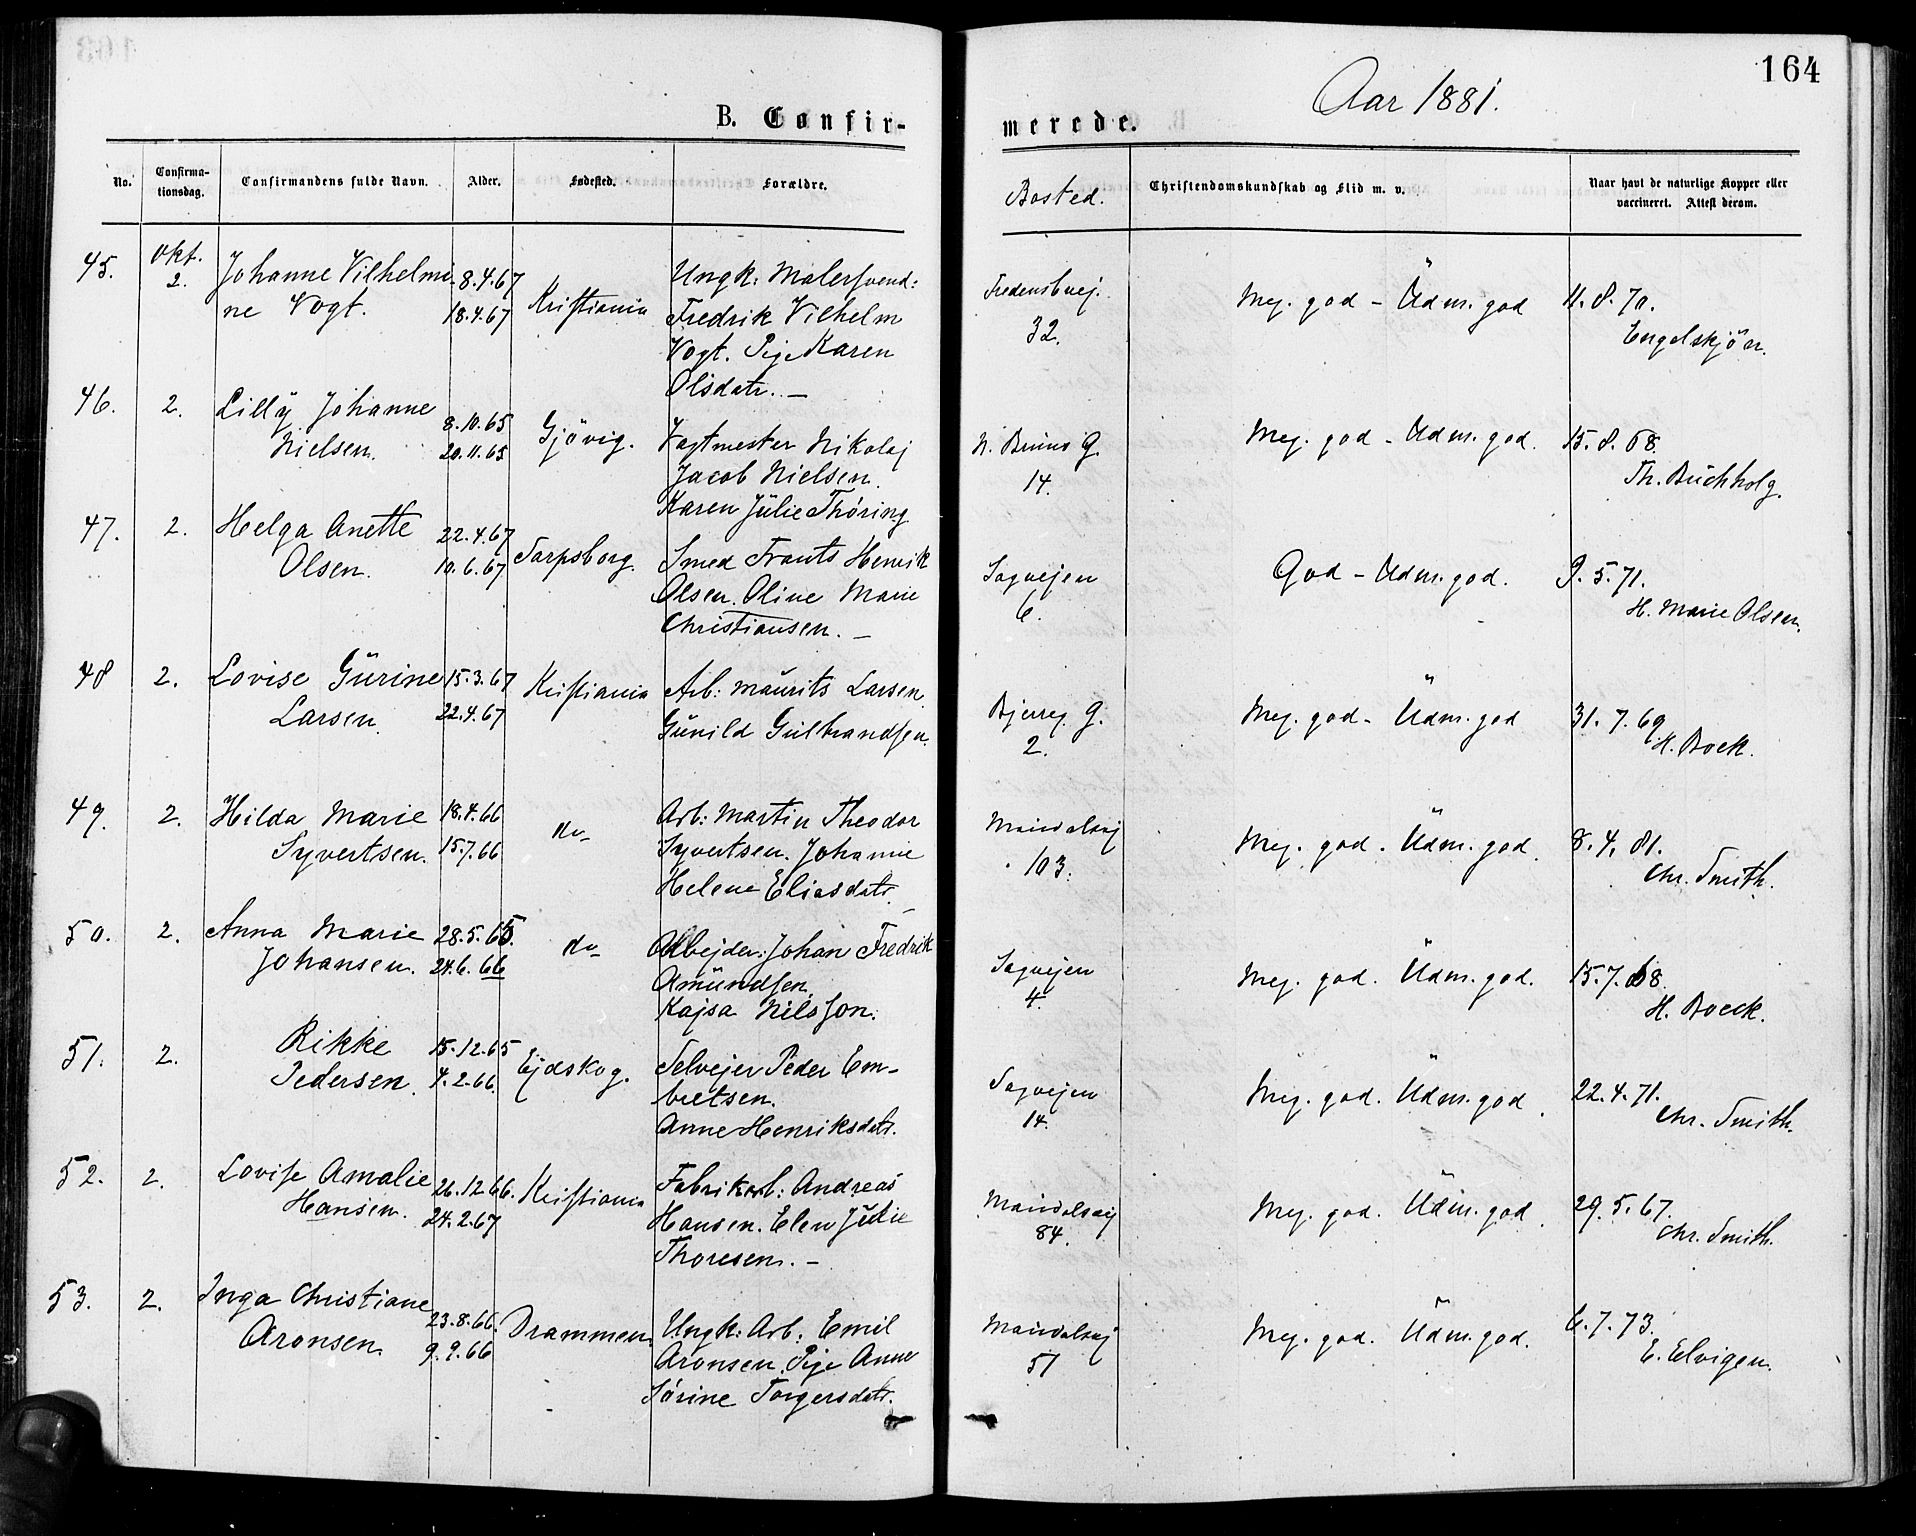 164
Aar 1881.
B. Confir-
merede.
No.
Confirma-
tionsdag.
Confirmandens fulde Navn.
Alder.
Fødested.
Forældre.
Bosted.
Christendomskundskab og Flid m. v.
Naar havt de naturlige Kopper eller
vaccineret. Attest derom.
45.
Okt.
2.
Johanne Vilhelmi-
ne Vogt.
8.4.67
18.4.67
Kristiania
Ungk: Malersvend:
Fredrik Vilhelm
Vogt. Pige Karen
Olsdatr. —
Fredensbvej.
32.
Meg. god - Udm. god
11. 8. 70.
Engelskjön.
46.
2.
Lilly Johanne
Nielsen.
8.10.65
20.11.65
Gjövig.
Vagtmester Nikolaj
Jacob Nielsen.
Karen Julie Thöring
N. Bruns G.
14.
Meg. god - Udm. god.
15. 8. 68.
Th. Buchholz.
47.
2.
Helga Anette
Olsen.
22.4.67
10.6.67
Sarpsborg.
Smed Frants Henrik
Olsen. Oline Marie
Christiansen. —
Sagvejen
6.
God - Udm. god.
9. 5. 71.
H. Marie Olsen.
48
2.
Lovise Gurine
Larsen.
15.3.67
22.4.67
Kristiania
Arb: Maurits Larsen
Gunild Gulbrandsen.
Bjerreg. G.
2.
Meg. god - Udm. god
31. 7. 69
H. Boek.
49.
2.
Hilda Marie
Syvertsen.
18.4.66
15.7.66
do
Arb: Martin Theodor
Syvertsen. Johanne
Helene Eliasdatr.
Maridalsvej
103.
Meg. god. Udm. god.
8. 4. 81.
Chr. Smith.
50.
2.
Anna Marie
Johansen.
28.5.65.
24.6.66
do
Arbejder: Johan Fredrik
Amundsen.
Kajsa Nilsson.
Sagvejen
4.
Meg. god. Udm. god.
15. 7. 68.
H. Boeck.
51.
2.
Rikke
Pedersen.
15.12.65
4.2.66.
Ejdskog.
Selvejer Peder Em-
bretsen.
Anne Henriksdatr.
Sagvejen
14.
Meg. god. Udm. god.
22. 4. 71.
Chr. Smith.
52.
2.
Lovise Amalie
Hansen.
26.12.66.
24.2.67
Kristiania
Fabrikarb: Andreas
Hansen. Elen Julie
Thoresen. —
Maridalsvej
84.
Meg. god. Udm. god.
29. 5. 67.
Chr. Smith.
53.
2.
Inga Christiane
Aronsen.
23.8.66.
9.9.66
Drammen.
Ungk: Arb: Emil
Aronsen. Pige Anne
Sörine Torgersdatr.
Maridalsvej
51
Meg. god. Udm. god.
6. 7. 73.
E. Elvigen.